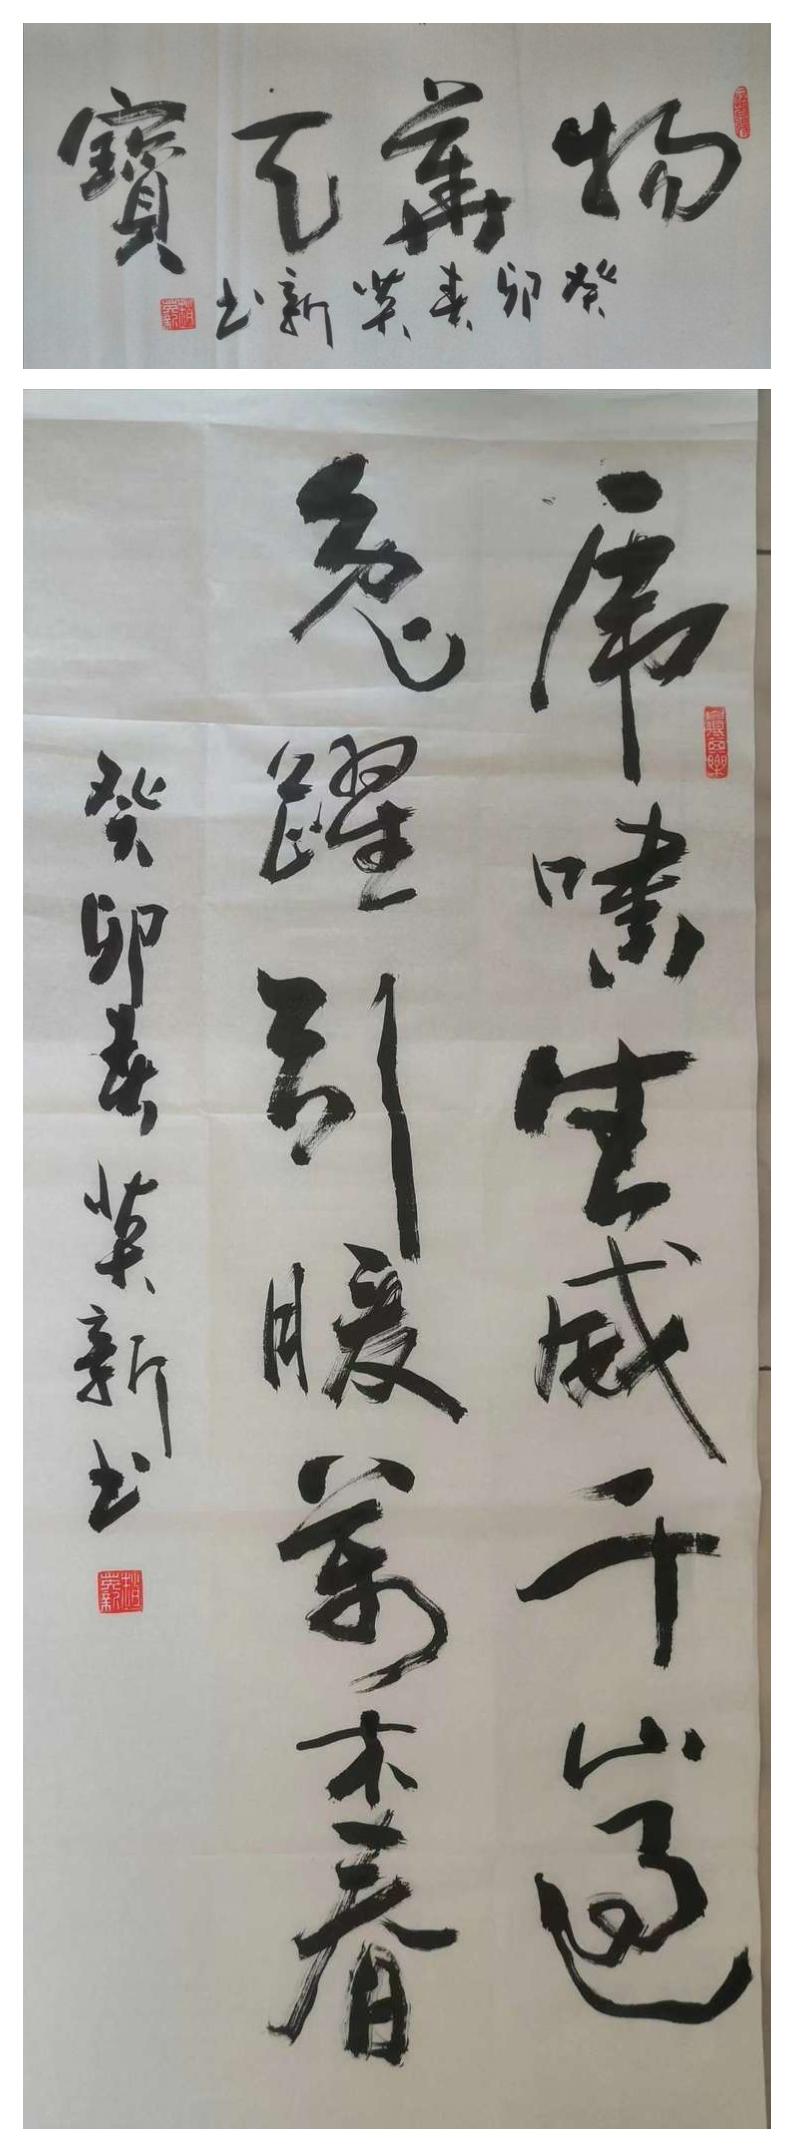 物華天寶
癸卯春英新书
虎嘯生威千山過
兔躍引暖萬木春
癸卯春英新书